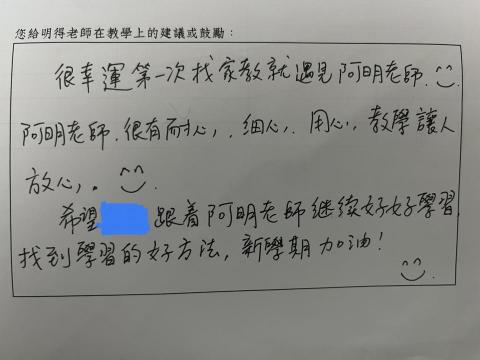 您給明得老師在教學上的建議或鼓勵：
很幸運第一次找家教就遇見阿明老師.
阿明老師.很有耐心,.細心,.用心,.教學讓人
放心,.
希望 跟着阿明老師继续好好學習,
找到學習的好方法,新學期加油!